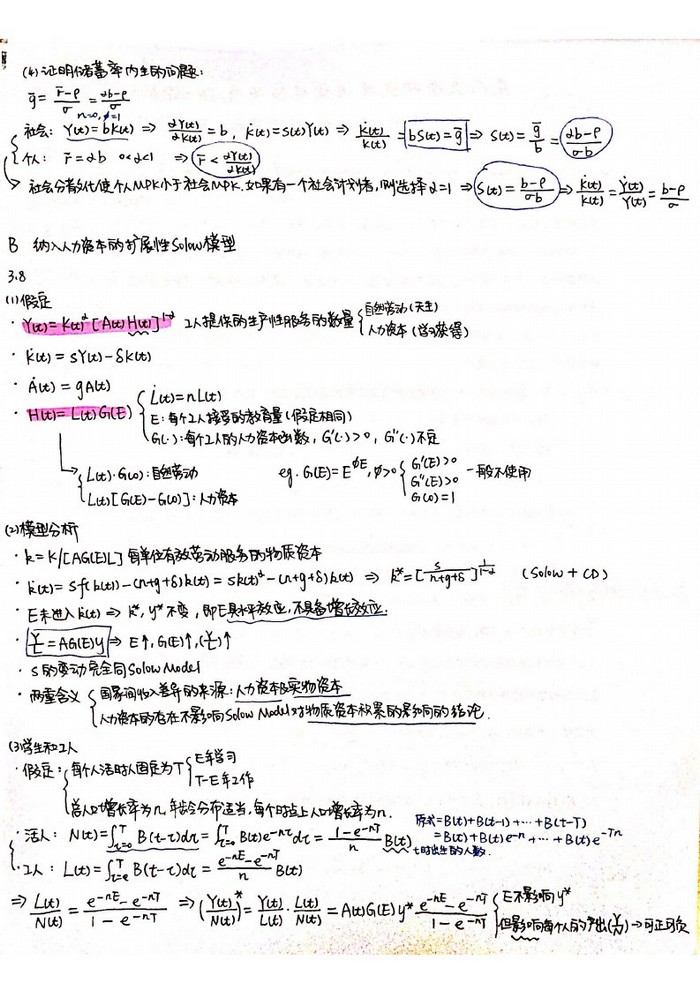 (4) 证明储蓄率内生的问题:
ḡ = (r̄-ρ)/σ = (αb-ρ)/σ
n=0, φ=1
社会: Y(t)=bK(t) ⇒ ∂Y(t)/∂K(t) = b, K̇(t)=s(t)Y(t) ⇒ K̇(t)/K(t) = bs(t)=ḡ ⇒ s(t)= ḡ/b = (αb-ρ)/σb
个人: r̄=αb 0<α<1 ⇒ r̄ < ∂Y(t)/∂K(t)
社会分散化使个人MPK小于社会MPK. 如果有一个社会计划者, 则选择α=1 ⇒ s(t)= (b-ρ)/σb ⇒ K̇(t)/K(t) = Ẏ(t)/Y(t) = (b-ρ)/σ
B 纳入人力资本的扩展性Solow模型
3.8
(1) 假定
· Y(t)=K(t)^α [A(t)H(t)]^1-α 工人提供的生产性服务的数量 { 自然劳动(天生)
人力资本(学习获得)
· K̇(t)=sY(t)-δK(t)
· Ȧ(t)=gA(t)
· H(t)=L(t)G(E) { L̇(t)=nL(t)
E: 每个工人接受的教育量(假定相同)
G(·): 每个工人的人力资本函数, G'(·)>0, G''(·)不定
L(t)·G(0): 自然劳动
L(t)[G(E)-G(0)]: 人力资本
eg. G(E)=E^φE, φ>0 { G'(E)>0
G''(E)>0
G(0)=1
一般不使用
(2) 模型分析
· k=K/[AG(E)L] 每单位有效劳动服务的物质资本
· k̇(t)=sf(k(t))-(n+g+δ)k(t)=sk(t)^α-(n+g+δ)k(t) ⇒ k*=[s/(n+g+δ)]^1/(1-α) (Solow + CD)
· E未进入k̇(t) ⇒ k*, y*不变, 即E具水平效应, 不具备增长效应.
· Y/L = AG(E)y ⇒ E↑, G(E)↑, (Y/L)↑
· s的变动完全同Solow Model
· 两重含义 { 国家间收入差异的来源: 人力资本及实物资本
人力资本的存在不影响Solow Model对物质资本积累的影响的结论.
(3) 学生和工人
· 假定: { 每个人活时人固定为T { E年学习
T-E年工作
总人口增长率为n, 年龄分布适当, 每个时点上人口增长率为n.
· 活人: N(t)=∫_{τ=0}^T B(t-τ)dτ = ∫_{τ=0}^T B(t)e^-nτ dτ = (1-e^-nT)/n B(t)
原式=B(t)+B(t-1)+···+B(t-T)
=B(t)+B(t)e^-n+···+B(t)e^-Tn
t时出生的人数.
· 工人: L(t)=∫_{τ=E}^T B(t-τ)dτ = (e^-nE-e^-nT)/n B(t)
⇒ L(t)/N(t) = (e^-nE-e^-nT)/(1-e^-nT) ⇒ (Y(t)/N(t))* = Y(t)/L(t) · L(t)/N(t) = A(t)G(E)y* (e^-nE-e^-nT)/(1-e^-nT) { E不影响y*
但影响每个人的产出(Y/N) → 可正可负